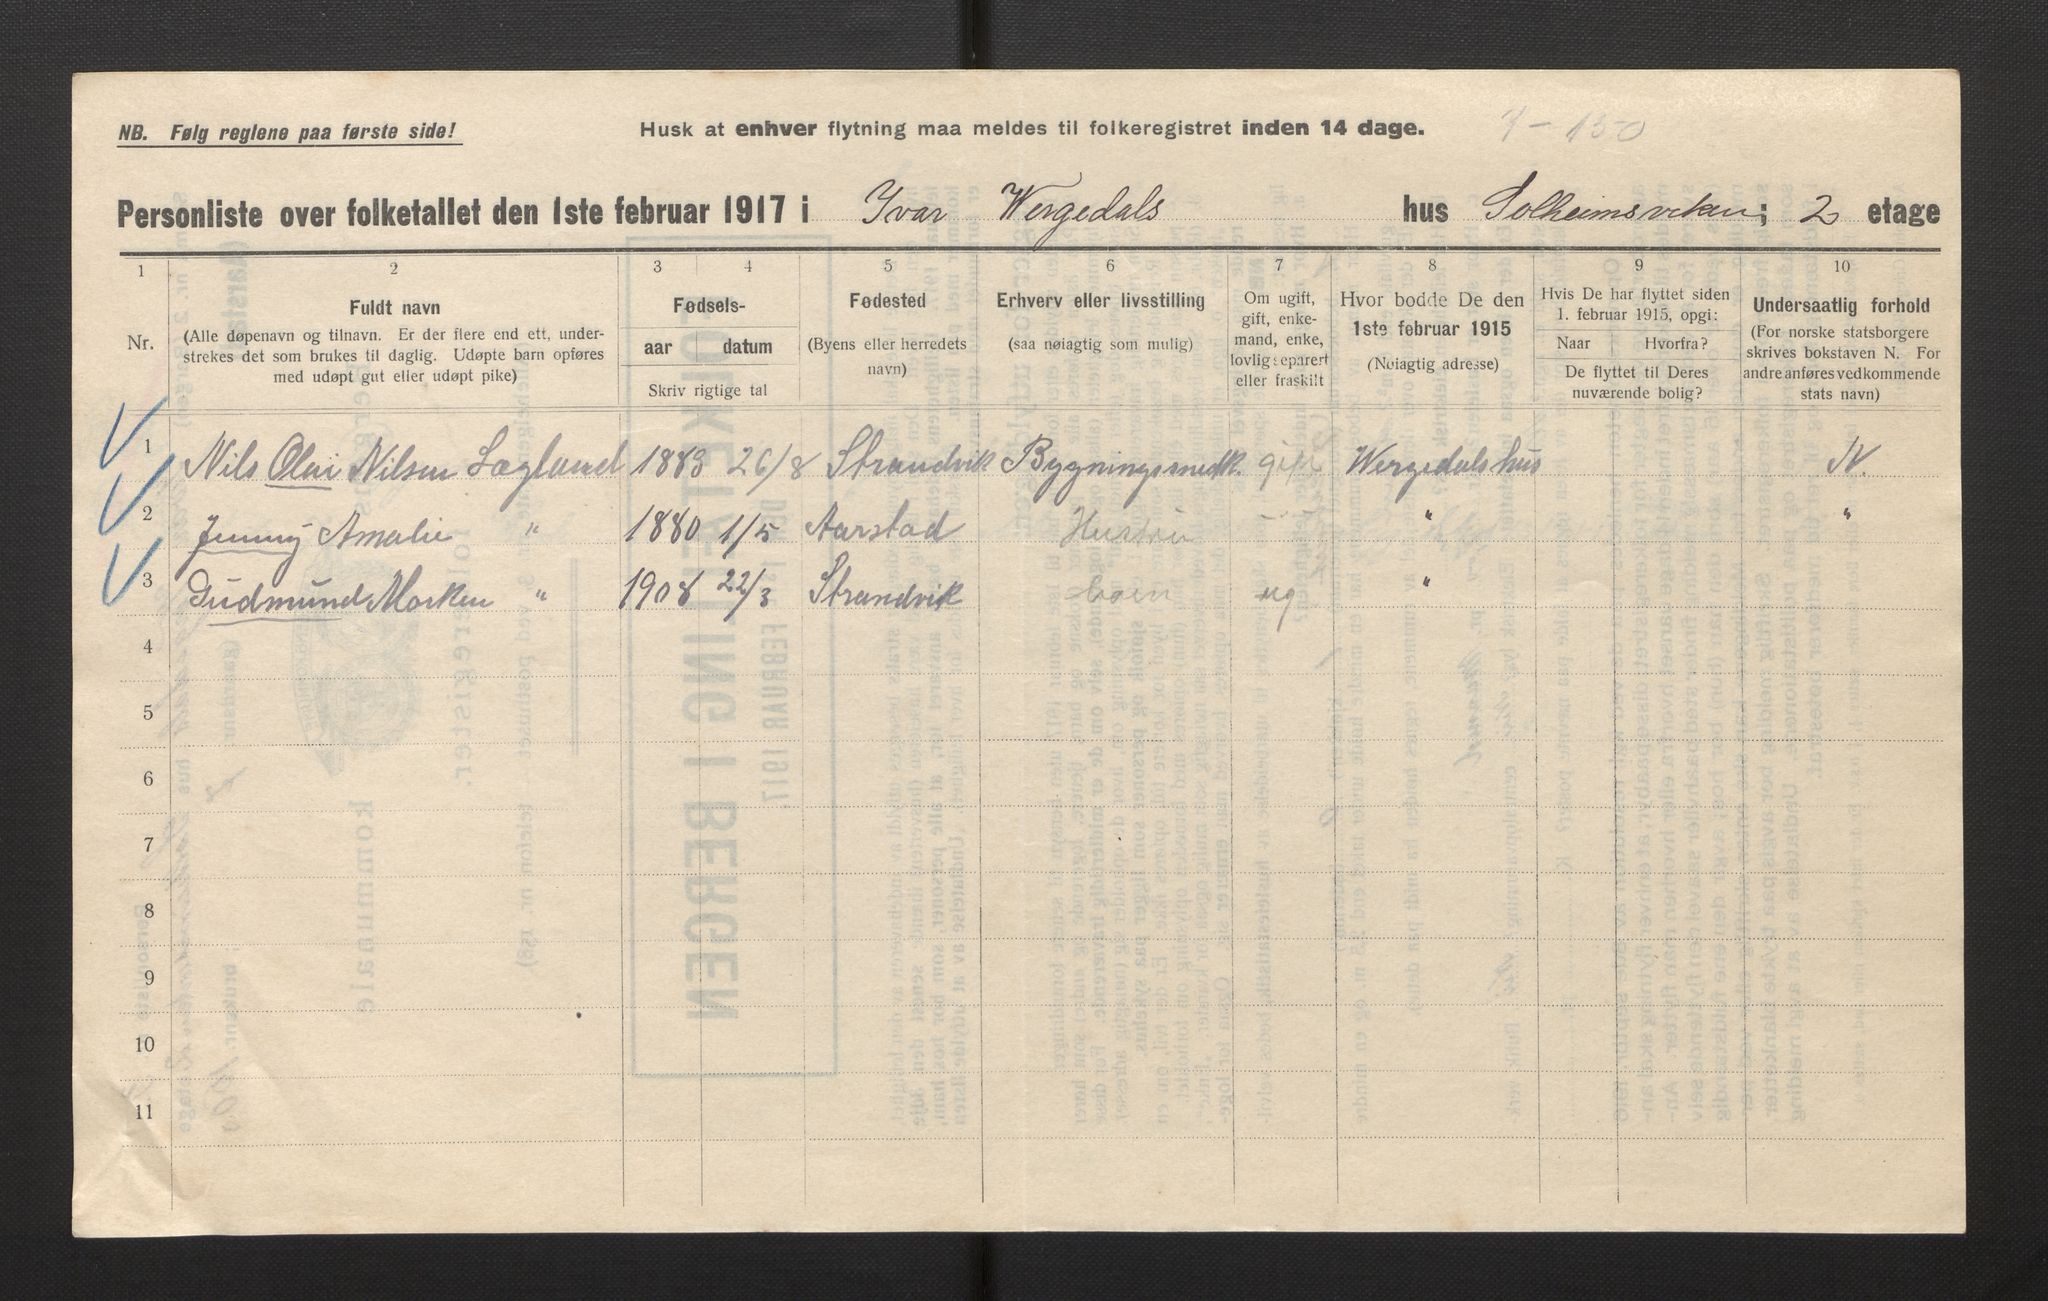 NB. Følg reglene paa første side!
Husk at enhver flytning maa meldes til folkeregistret inden 14 dage.
Personliste over folketallet den 1ste februar 1917 i Ivar Wergedals hus Solheimsviken; 2 etage
1 2 3 4 5 6 7 8 9 10
Nr.
Fuldt navn
(Alle døpenavn og tilnavn. Er der flere end ett, under-
strekes det som brukes til daglig. Udøpte barn opføres
med udøpt gut eller udøpt pike)
Fødsels-
aar datum
Skriv rigtige tal
Fødested
(Byens eller herredets
navn)
Erhverv eller livsstilling
(saa nøiagtig som mulig)
Om ugift,
gift, enke-
mand, enke,
lovlig separert
eller fraskilt
Hvor bodde De den
1ste februar 1915
(Nøiagtig adresse)
Hvis De har flyttet siden
1. februar 1915, opgi:
Naar Hvorfra?
De flyttet til Deres
nuværende bolig?
Undersaatlig forhold
(For norske statsborgere
skrives bokstaven N. For
andre anføres vedkommende
stats navn)
1 Nils Olai Nilsen Sægland 1883 26/8 Strandvik Bygningssnedk. gift Wergedals hus N.
2 Jenny Amalie " 1880 1/5 Aarstad Hustru " " "
3 Gudmund Morken " 1908 22/3 Strandvik barn ug "
4
5
6
7
8
9
10
11